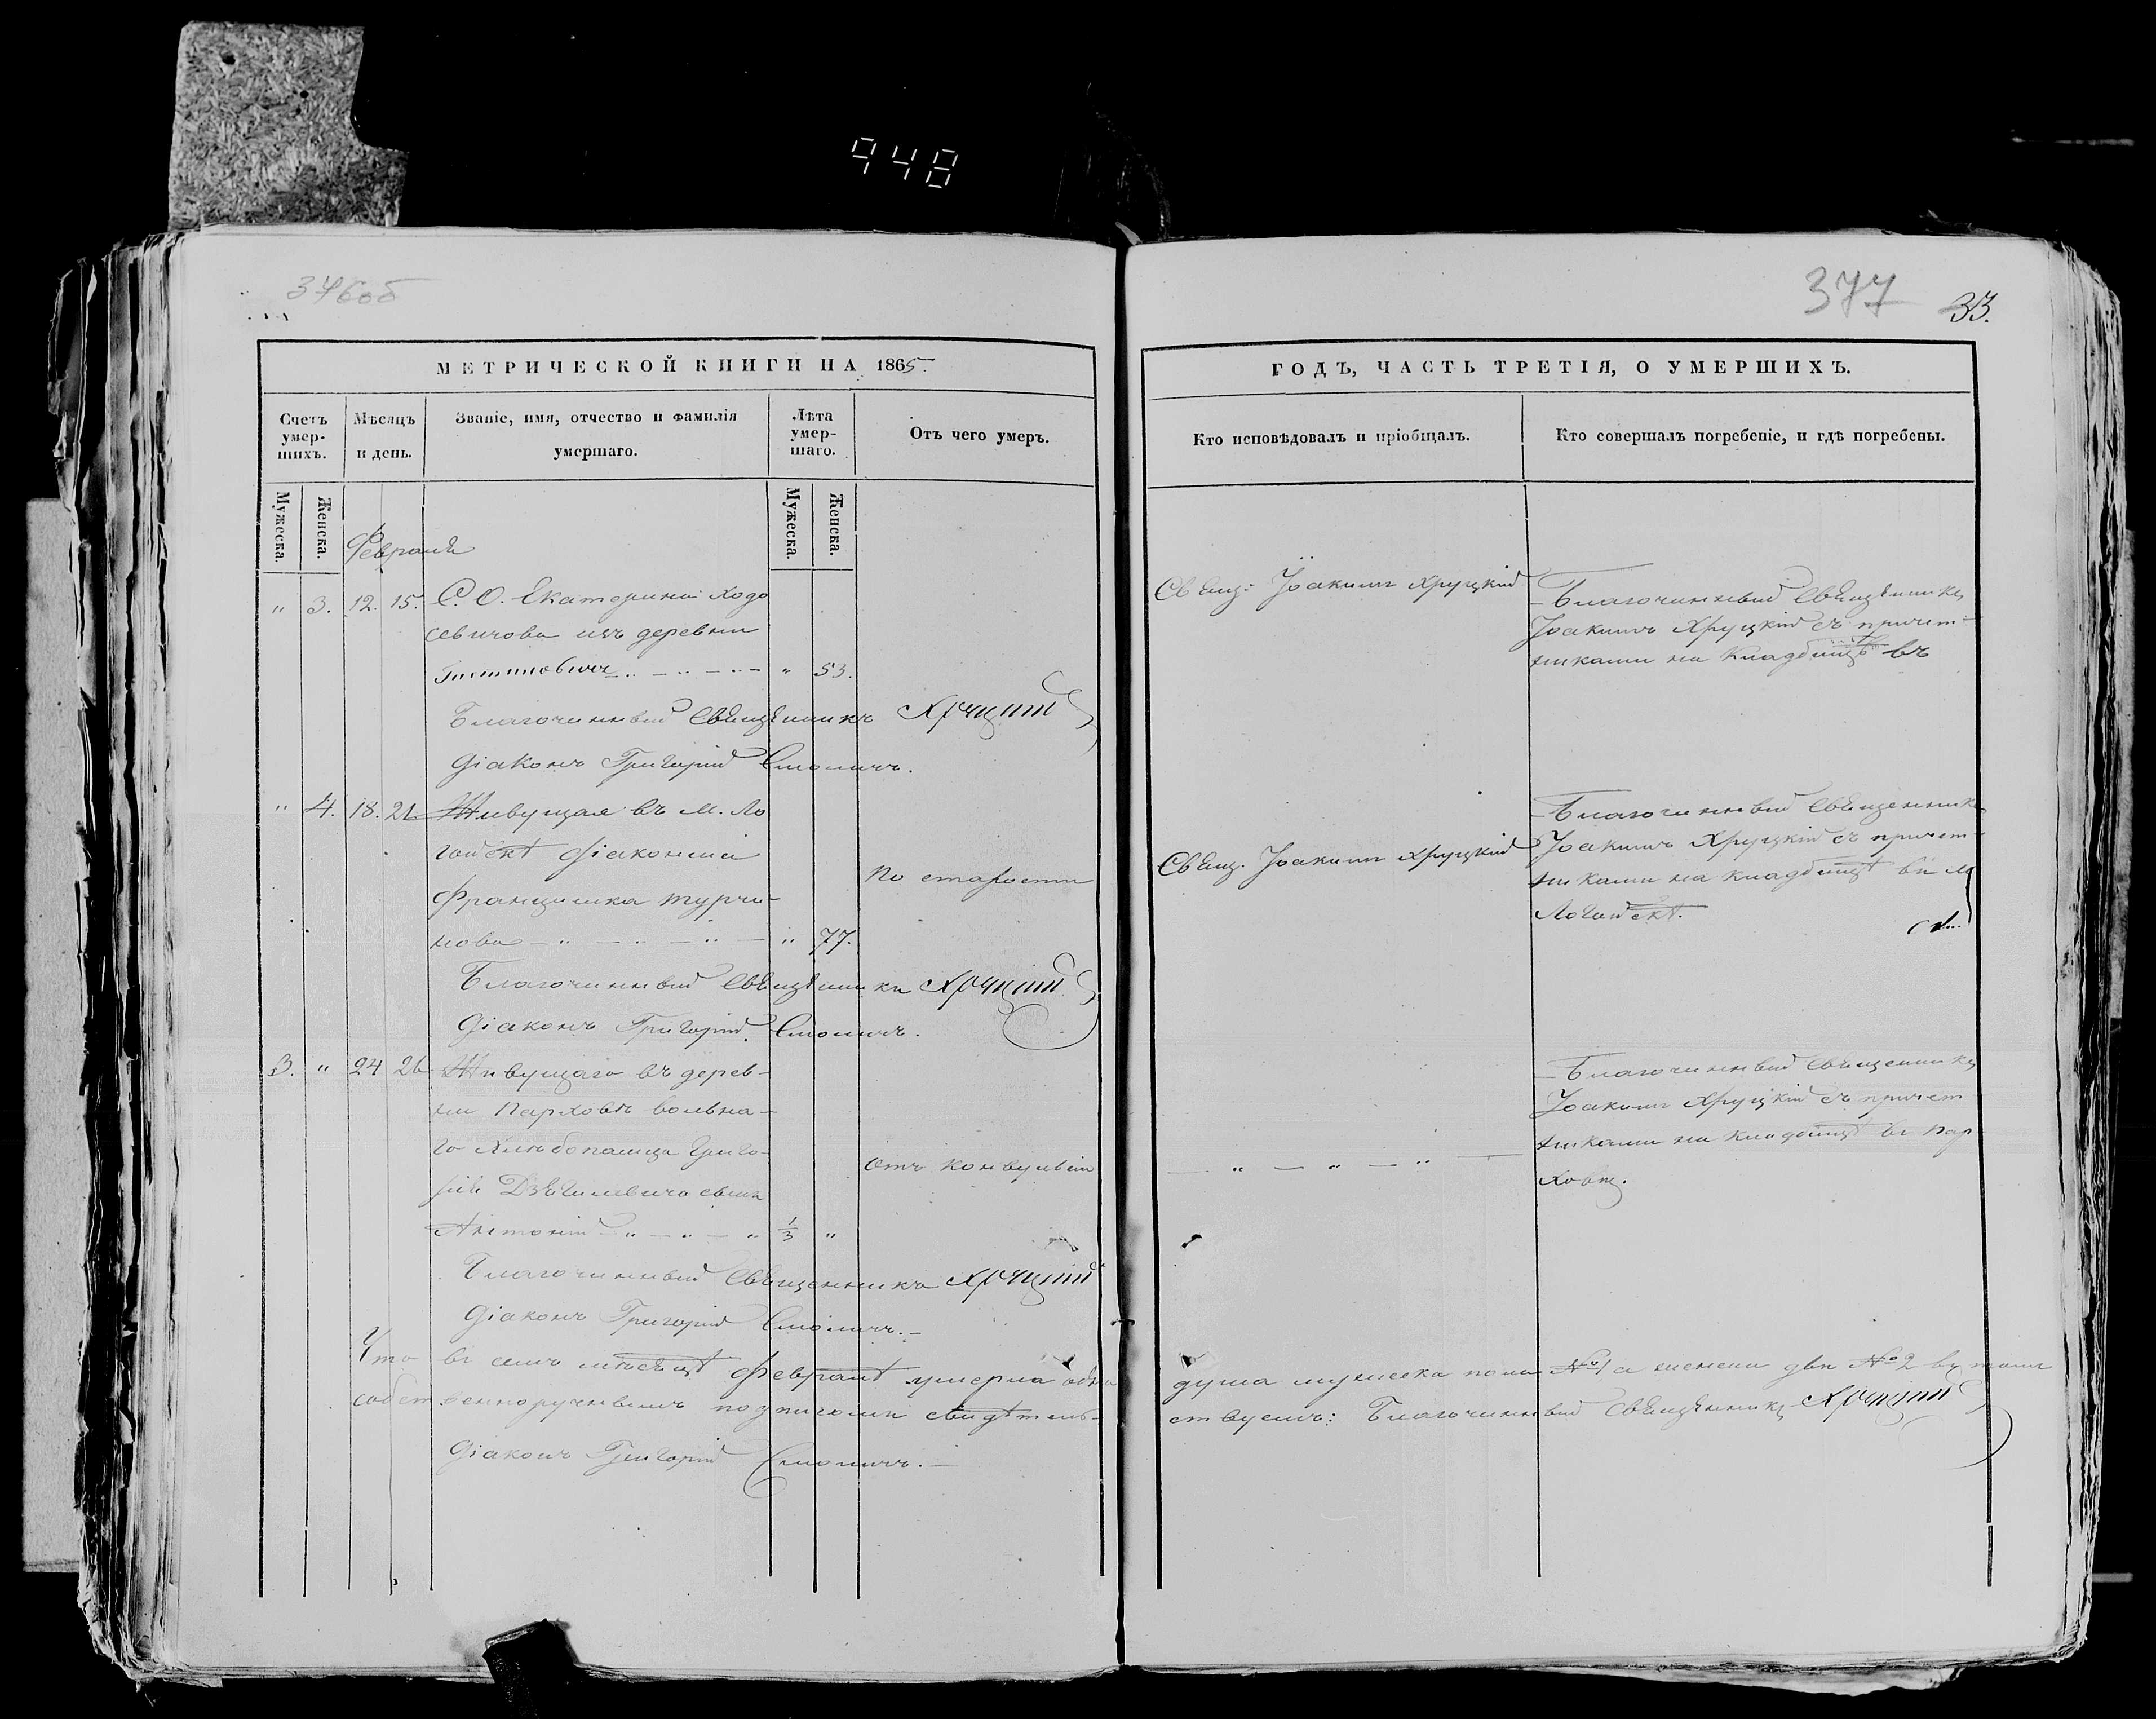 948
376об
377
33.
МЕТРИЧЕСКОЙ КНИГИ НА 1865.
ГОДЪ, ЧАСТЬ ТРЕТІЯ, О УМЕРШИХЪ.
Счетъ умер-шихъ.
Мѣсяцъ и день.
Званіе, имя, отчество и фамилія умершаго.
Лѣта умер-шаго.
Отъ чего умеръ.
Кто исповѣдовалъ и пріобщалъ.
Кто совершалъ погребеніе, и гдѣ погребены.
Мужеска. Женска. Мужеска. Женска.
Февраля
" 3. 12. 15. С. О. Екатерина Ходо
севичова изъ деревни
" 53.
Свящ: Іоакимъ Хруцкій
Благочинный Священникъ
Іоакимъ Хруцкій съ причет-
никами на кладбищѣ въ
Благочинный Священникъ Хруцкій
Діаконъ Григорій Смоличъ.
" 4. 18. 21. Живущая въ м. Ло
гойскѣ Діаконша
Францишка Турчи-
нова " 77.
По старости
Свящ. Іоакимъ Хруцкій
Благочинный Священникъ
Іоакимъ Хруцкій съ причет-
никами на кладбищѣ въ м
Логойскѣ.
Благочинный Священникъ Хруцкій
Діаконъ Григорій Смоличъ.
3. " 24 26 Живущаго въ дерев-
ни Парховѣ вольна-
го хлѣбопашца Григо-
рія сынъ
Антоній " 1/3 "
Отъ конвульсіи
— " — " — " —
Благочинный Священникъ
Іоакимъ Хруцкій съ причет
никами на кладбищѣ въ Пар
ховѣ.
Благочинный Священникъ Хруцкій
Діаконъ Григорій Смоличъ.
Что въ семъ мѣсяцѣ Февралѣ умерла одна душа мужеска пола №1 а женска двѣ №2 въ томъ
собственноручнымъ подписомъ свидѣтель-ствуемъ: Благочинный Священникъ Хруцкій
Діаконъ Григорій Смоличъ.